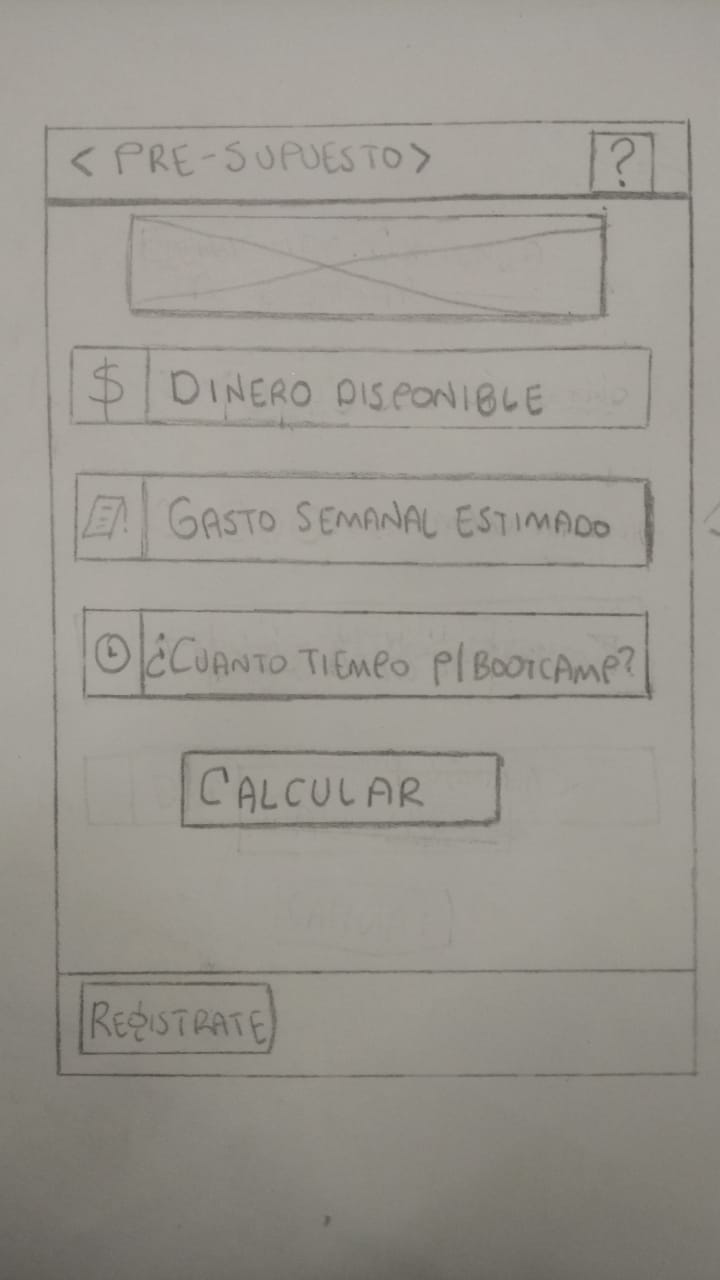 < PRE-SUPUESTO>
?
$ DINERO DISPONIBLE
GASTO SEMANAL ESTIMADO
¿CUANTO TIEMPO P/BOOTCAMP?
CALCULAR
REGISTRATE